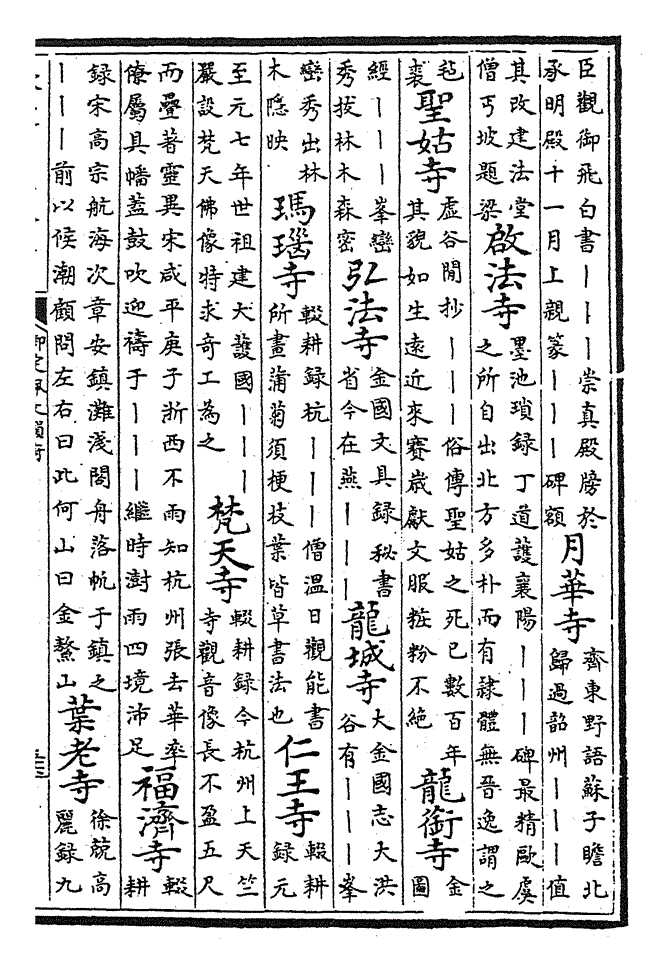 臣觀御飛白書｜｜｜崇真殿牓於
承明殿十一月上親篆｜｜｜碑額
月華寺
齊東野語蘇子瞻北
歸過韶州｜｜｜值
其改建法堂
僧丐坡題梁
啟法寺
墨池瑣録丁道護襄陽｜｜｜碑最精歐虞
之所自出北方多朴而有隸體無晉逸謂之
氊
裘
聖姑寺
虛谷閒抄｜｜｜俗傳聖姑之死已數百年
其貌如生遠近來賽歲獻文服粧粉不絕
龍銜寺
金
圖
經｜｜｜峯巒
秀拔林木森密
弘法寺
金國文具録秘書
省今在燕｜｜｜
龍城寺
大金國志大洪
谷有｜｜｜峯
巒秀出林
木隱映
瑪瑙寺
輟耕録杭｜｜｜僧溫日觀能書
所畫蒲萄須梗枝葉皆草書法也
仁王寺
輟耕
録元
至元七年世祖建大護國｜｜｜
嚴設梵天佛像特求奇工為之
梵天寺
輟耕録今杭州上天竺
寺觀音像長不盈五尺
而疊著靈異宋咸平庚子浙西不雨知杭州張去華率
僚屬具幡蓋鼓吹迎禱于｜｜｜繼時澍雨四境沛足
福濟寺
輟
耕
録宋高宗航海次章安鎮灘淺閣舟落帆于鎮之
｜｜｜前以候潮顧問左右曰此何山曰金鰲山
葉老寺
徐兢高
麗録九